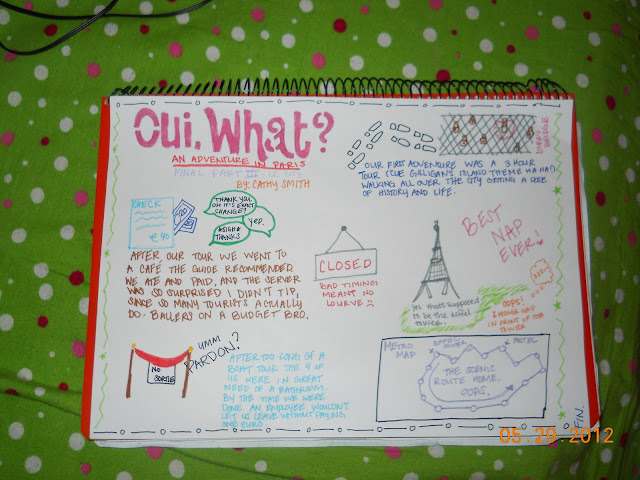 Oui, What?
AN ADVENTURE IN PARIS
FINAL PART III
BY: CATHY SMITH
BRIDGE
OUR FIRST ADVENTURE WAS A 3 HOUR
TOUR (CUE GILLIGAN'S ISLAND THEME HA HA!)
WALKING ALL OVER THE CITY GETTING A DOSE
OF HISTORY AND LIFE.
CHECK
€ 40
THANK YOU,
OH IT'S EXACT
CHANGE?
YEP.
*SIGH*
THANKS
AFTER OUR TOUR WE WENT TO
A CAFÉ THE GUIDE RECOMMENDED.
WE ATE AND PAID, AND THE SERVER
WAS SO SURPRISED I DIDN'T TIP,
SINCE SO MANY TOURISTS ACTUALLY
DO. BALLERS ON A BUDGET BRO.
CLOSED
BAD TIMING
MEANT NO
LOURVE :(
BEST
NAP
EVER!
yes thats supposed
to be the eiffel
tower.
OOPS!
2 HOUR NAP
IN FRONT OF THE
TOWER
NO
SORTIE
UMM
PARDON?
AFTER TOO LONG OF A
BOAT TOUR THE 4 OF
US WERE IN GREAT
NEED OF A BATHROOM.
BY THE TIME WE WERE
DONE AN EMPLOYEE WOULDN'T
LET US LEAVE WITHOUT PAYING
ONE EURO
METRO
MAP
EIFFEL
TOWER
HOTEL
THE SCENIC
ROUTE HOME.
OOPS.
FIN.
05.29.2012